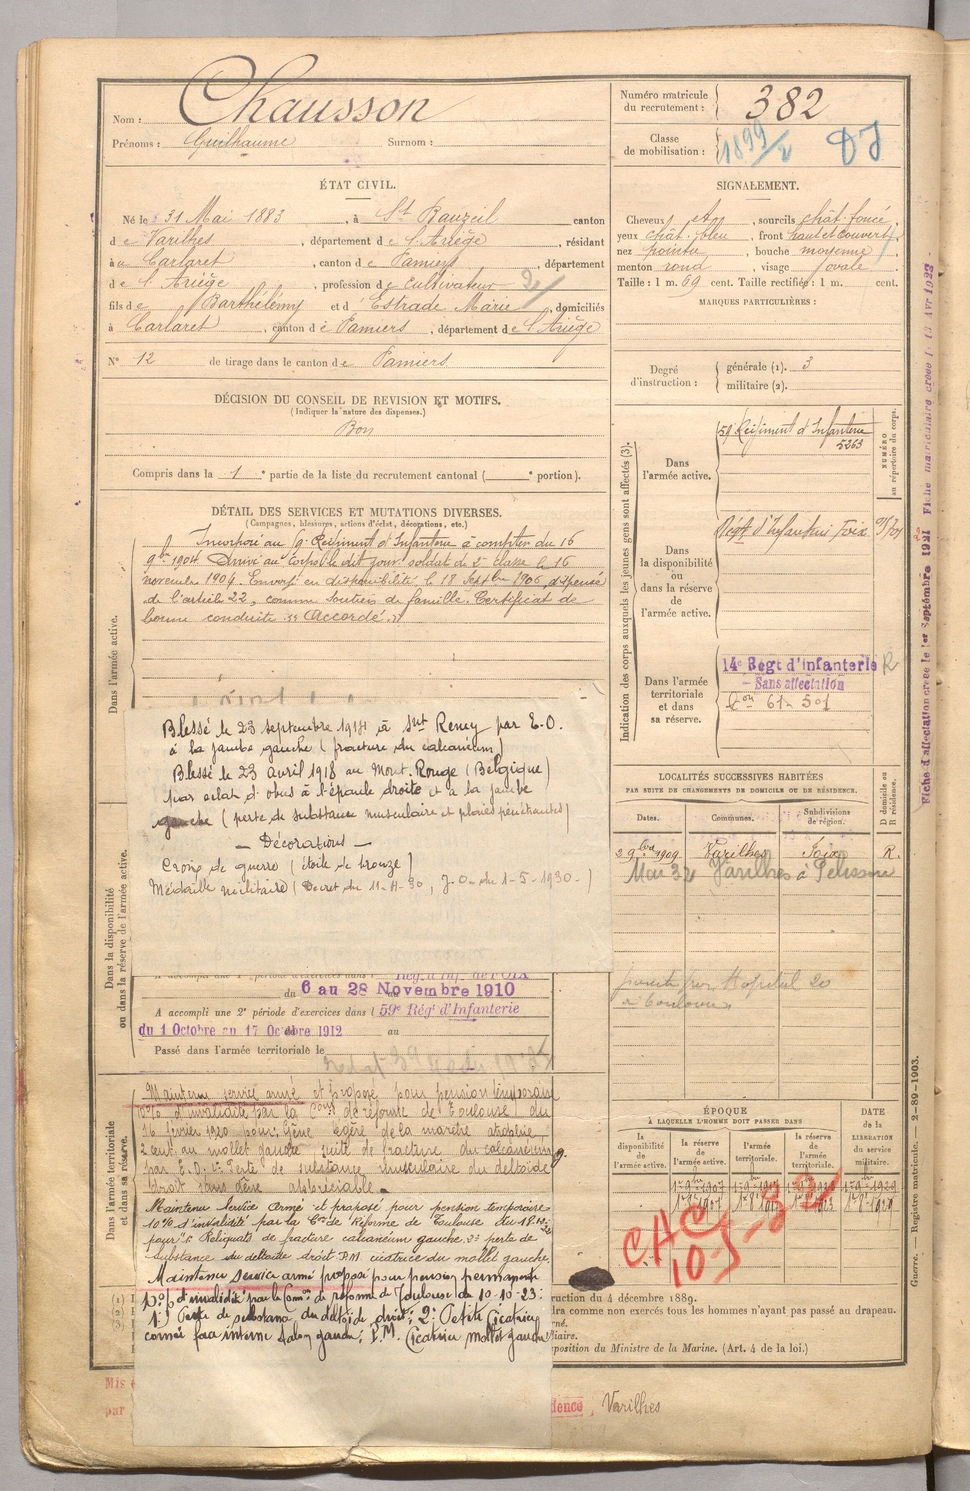 Nom : Chausson
Prénoms : Guilhaume Surnom :
Numéro matricule du recrutement : 382
Classe de mobilisation : 1899/2
ÉTAT CIVIL.
Né le 31 Mai 1883, à St Bauzeil canton
de Varilhes, département de l'Ariège, résidant
à u Carlaret, canton de Pamiers, département
de l'Ariège, profession de cultivateur
fils de Barthélémy et d' Estrade Marie, domiciliés
à Carlaret, canton de Pamiers, département de l'Ariège
N° 12 de tirage dans le canton de Pamiers
SIGNALEMENT.
Cheveux , sourcils chât. foncé,
yeux chât. bleu, front haut et couvert,
nez pointu, bouche moyenne,
menton rond, visage ovale
Taille : 1 m. 69 cent. Taille rectifiée : 1 m. cent.
MARQUES PARTICULIÈRES :
Degré d'instruction : générale (1). 3
militaire (2).
DÉCISION DU CONSEIL DE REVISION ET MOTIFS.
(Indiquer la nature des dispenses.)
Bon
Compris dans la 1e partie de la liste du recrutement cantonal ( e portion).
DÉTAIL DES SERVICES ET MUTATIONS DIVERSES.
(Campagnes, blessures, actions d'éclat, décorations, etc.)
Incorporé au 59e Régiment d'Infanterie à compter du 16
9bre 1904 Arrivé au corps le dit jour soldat de 2e classe le 16
novembre 1904. Envoyé en disponibilité le 18 septbre 1906, dispensé
de l'article 22, comme soutien de famille. Certificat de
bonne conduite "Accordé".
Dans l'armée active.
Blessé le 23 septembre 1914 à Snt Remy par E.O.
à la jambe gauche (fracture du calcanéum)
Blessé le 23 avril 1918 au Mont-Rouge (Belgique)
par éclat d'obus à l'épaule droite et à la jambe
gauche (perte de substance musculaire et plaies pénétrantes)
— Décorations —
Croix de guerre (étoile de bronze)
Médaille militaire (Décret du 11-4-30, J.O. du 1-5-1930-)
Dans la disponibilité ou dans la réserve de l'armée active.
Rég. d'Inf. de FOIX
du 6 au 28 Novembre 1910
A accompli une 2e période d'exercices dans l 59e Régt d'Infanterie
du 1 Octobre au 17 Octobre 1912 au
Passé dans l'armée territoriale le
Dans l'armée territoriale et dans sa réserve.
Maintenu service armé et proposé pour pension temporaire
10% d'invalidité par la Cons de réforme de Toulouse du
16 février 1920 pour: Gêne légère de la marche atrophie,
2 cent. au mollet gauche, suite de fracture du calcanéum g.
par E.O. 2: Perte de substance musculaire du deltoïde
droit sans gêne appréciable.
Maintenu Service Armé et proposé pour pension temporaire
10% d'invalidité par la Con de Réforme de Toulouse du 18.10.22
pour: 1° Reliquats de fracture calcanéum gauche. 2° perte de
substance du deltoïde droit: P.M. cicatrice du mollet gauche.
Maintenu service armé proposé pour pension permanente
10% d'invalidité par la Comon de réforme de Toulouse du 10-10-23:
1°) Perte de substance du deltoïde droit; 2° Petite Cicatrice
cornée face interne talon gauche; P.M. Cicatrice mollet gauche
Indication des corps auxquels les jeunes gens sont affectés (3).
NUMÉRO au répertoire du corps.
Dans l'armée active.
59 Régiment d'Infanterie
5263
Dans la disponibilité ou dans la réserve de l'armée active.
Régt d'Infanterie Foix
Dans l'armée territoriale et dans sa réserve.
14e Régt d'infanterie R
— Sans affectation
LOCALITÉS SUCCESSIVES HABITÉES
PAR SUITE DE CHANGEMENTS DE DOMICILE OU DE RÉSIDENCE.
Dates. Communes. Subdivisions de région. D domicile ou R résidence.
29 bre 1909 Varilhes Foix R.
Mai 32 Varilhes à Pelissou
Hopital 20
à Toulouse
ÉPOQUE
À LAQUELLE L'HOMME DOIT PASSER DANS
la disponibilité de l'armée active. la réserve de l'armée active. l'armée territoriale. la réserve de l'armée territoriale.
DATE de la LIBÉRATION du service militaire.
CAC
10-5-32
ruction du 4 décembre 1889.
dra comme non exercés tous les hommes n'ayant pas passé au drapeau.
né.
liaire.
position du Ministre de la Marine. (Art. 4 de la loi.)
Mis
par
dence, Varilhes
Guerre. — Registre matricule. — 2-89-1903.
Fiche d'affectation créée le 1er Septembre 1921 Fiche matriculaire créée le 13 Avr 1923